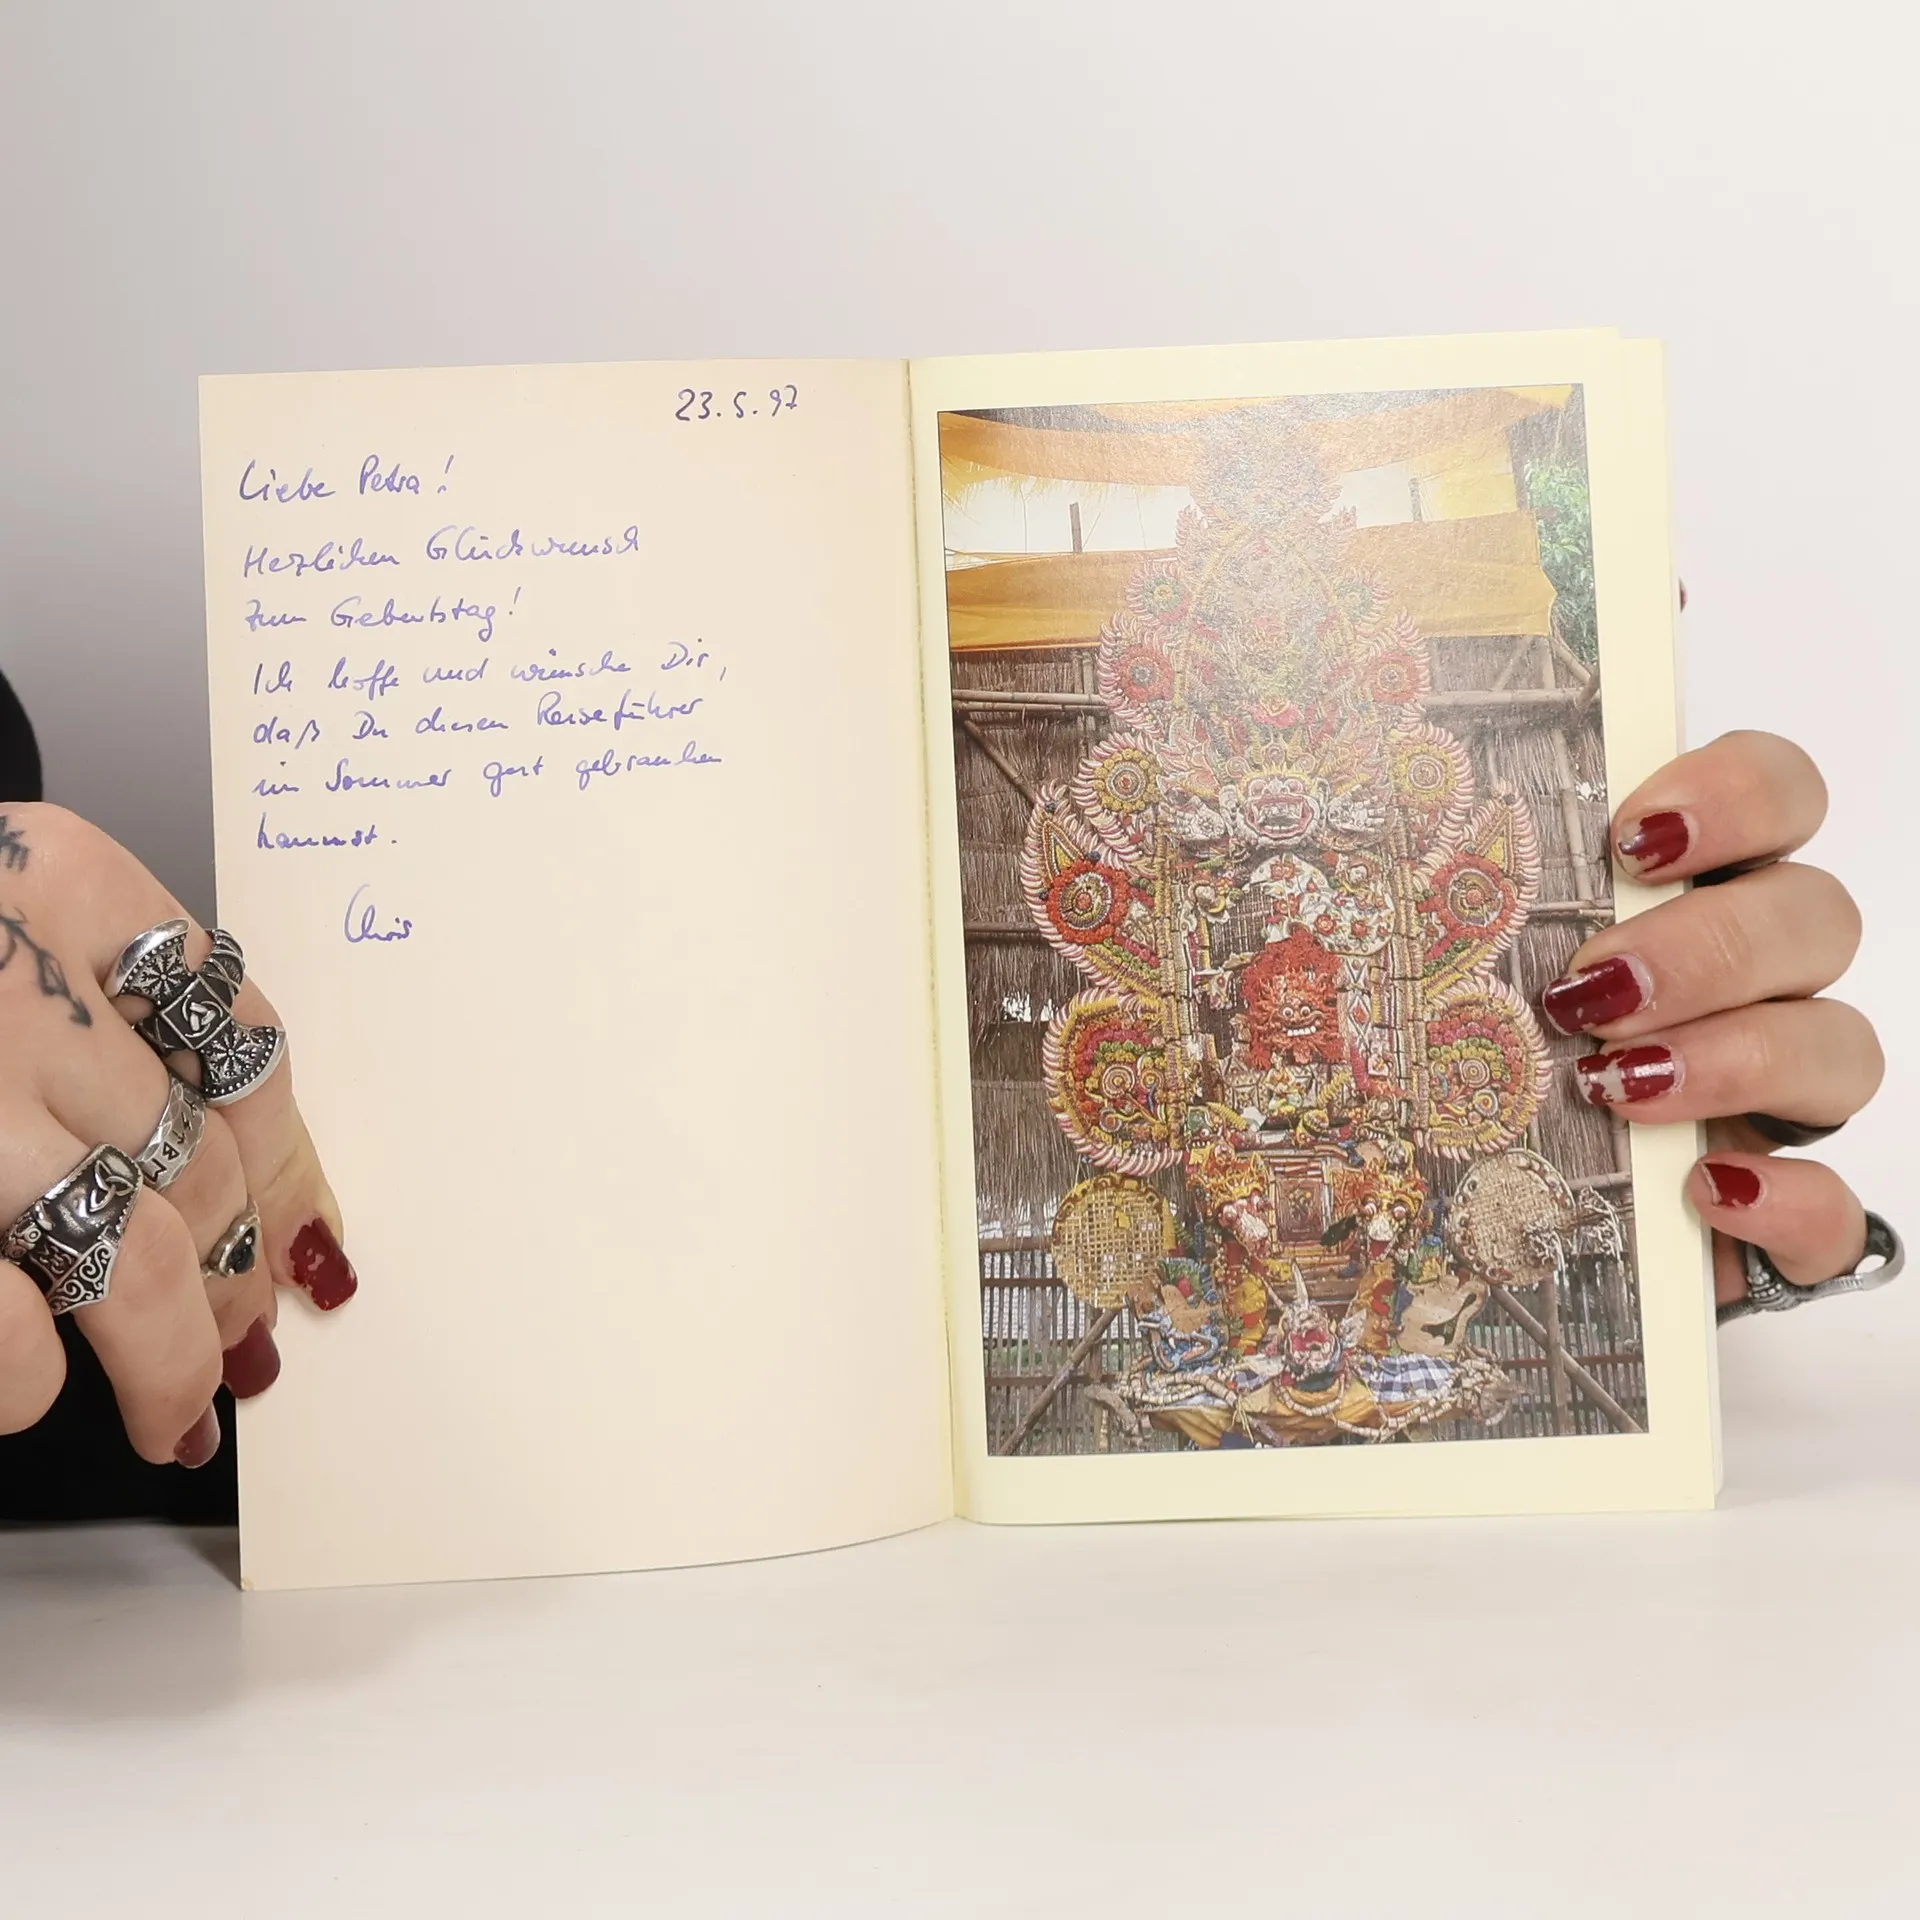 23.5.97
Liebe Petra!
Herzlichen Glückwunsch
zum Geburtstag!
Ich hoffe und wünsche Dir,
daß Du diesen Reiseführer
im Sommer gut gebrauchen
kannst.
Chris